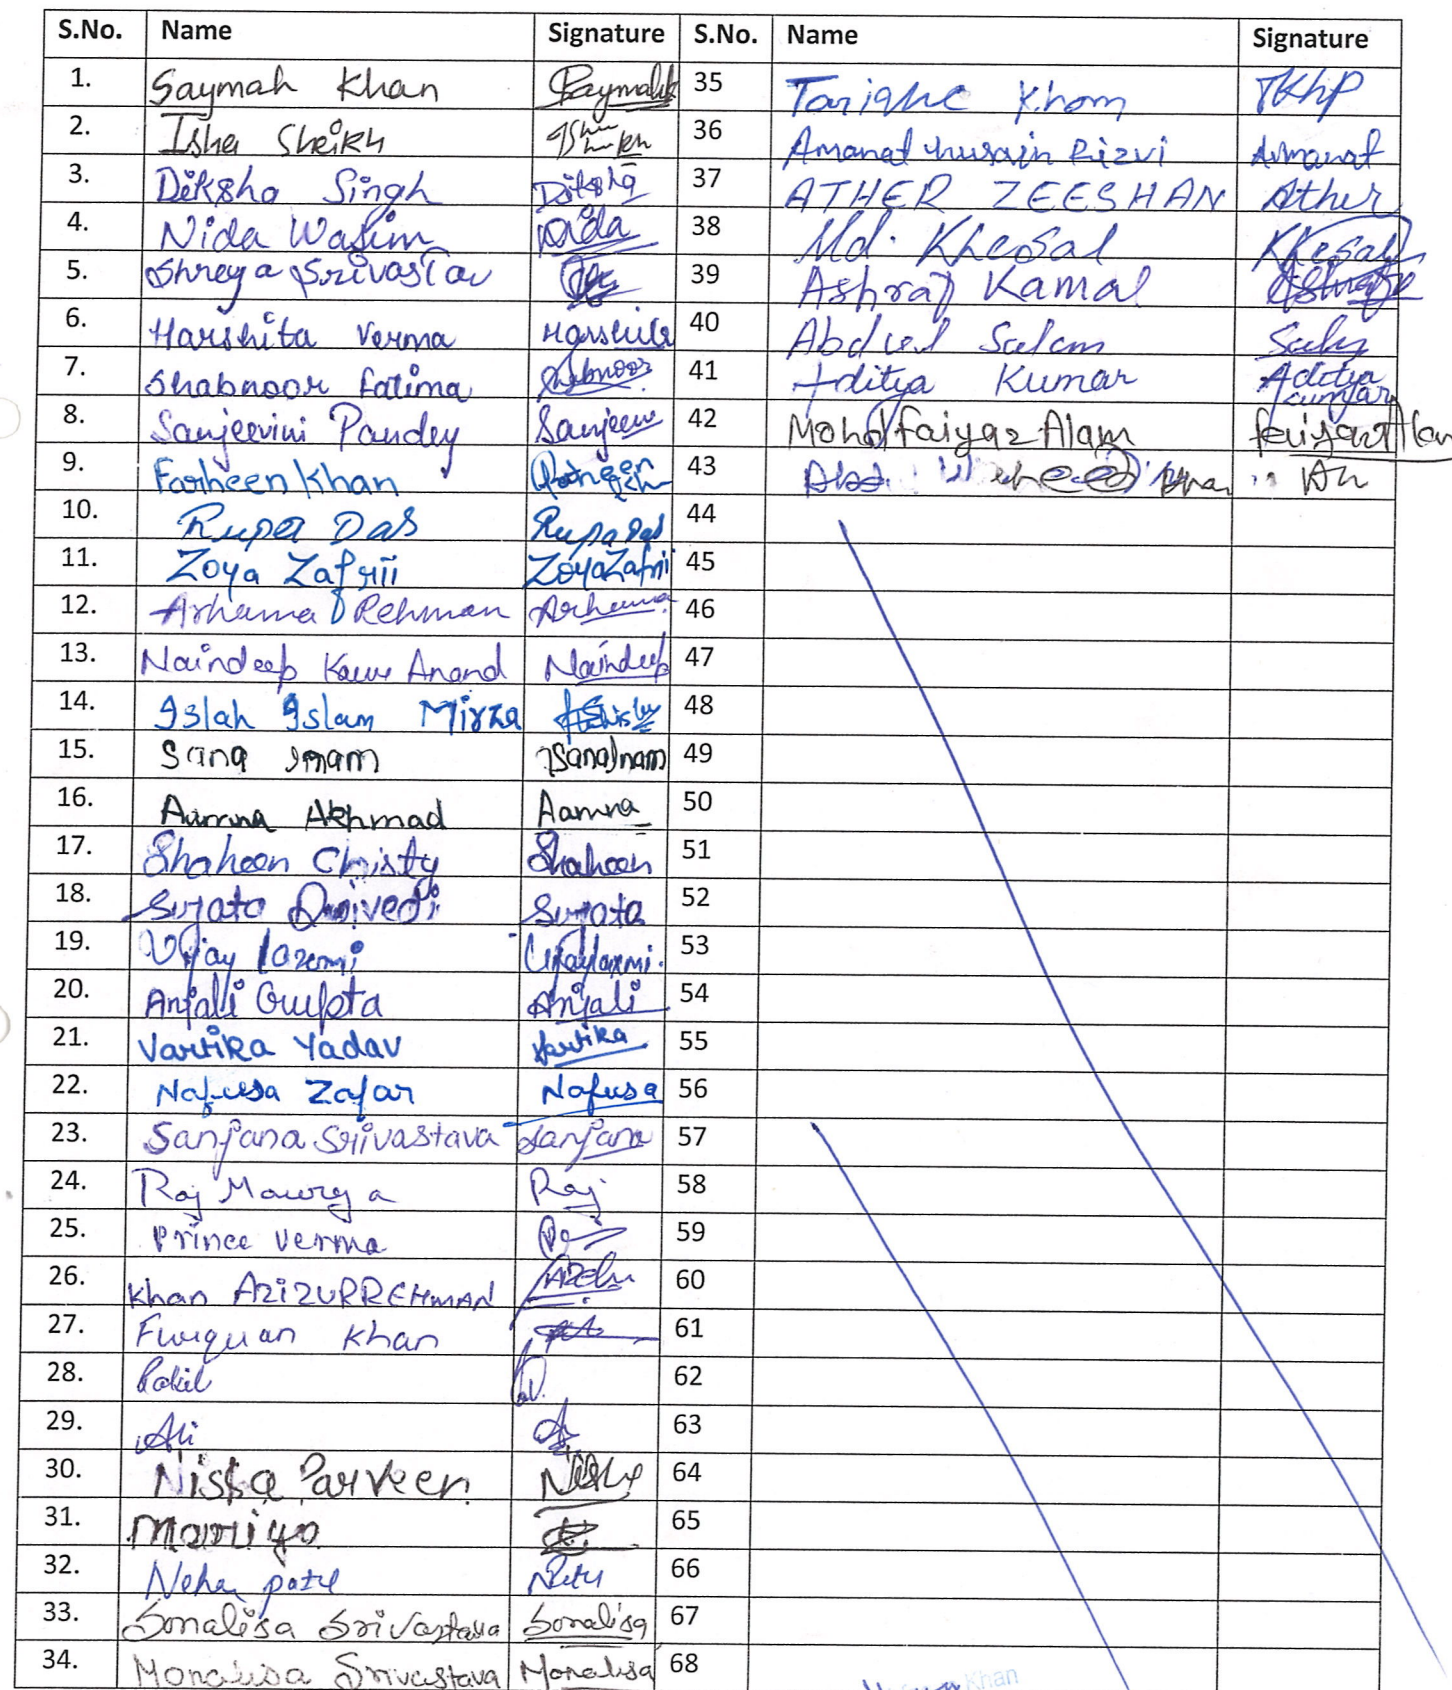 S.No. Name Signature S.No. Name Signature
1. Saymah Khan Saymah 35 Tarique Khan TKhp
2. Isha Sheikh Isha Sheikh 36 Amanat husain Rizvi Amanat
3. Diksha Singh Diksha 37 ATHER ZEESHAN Ather
4. Nida Wasim Nida 38 Md. Khesal KKesal
5. Shreya Srivastav 39 Ashraf Kamal Ashraf
6. Harshita Verma Harshita 40 Abdul Salam
7. Shabnoor Fatima Shabnoor 41 Aditya Kumar Aditya Kumar
8. Sanjeevini Pandey Sanjeev 42 Mohd Faiyaz Alam Faiyaz Alam
9. Farheen Khan Farheen 43
10. Rupa Das Rupa Das 44
11. Zoya Zafrii Zoya Zafri 45
12. Arhama Rehman Arhama 46
13. Naindeep Kaur Anand Naindeep 47
14. Islah Islam Mirza 48
15. Sana Imam Sana Imam 49
16. Aamna Akhmad Aamna 50
17. Shaheen Christy Shaheen 51
18. Sujata Dwivedi Sujata 52
19. Vijay laxmi Vijaylaxmi. 53
20. Anjali Gupta Anjali 54
21. Vartika Yadav Vartika 55
22. Nafusa Zafar Nafusa 56
23. Sanjana Srivastava Sanjana 57
24. Raj Maurya Raj 58
25. Prince Verma 59
26. Khan AZIZURREHMAN 60
27. Furquan Khan 61
28. 62
29. Ali 63
30. Nisha Parveen Nisha 64
31. Mariya 65
32. Neha patel 66
33. Sonalisa Srivastava Sonalisa 67
34. Monalisa Srivastava Monalisa 68
Khan